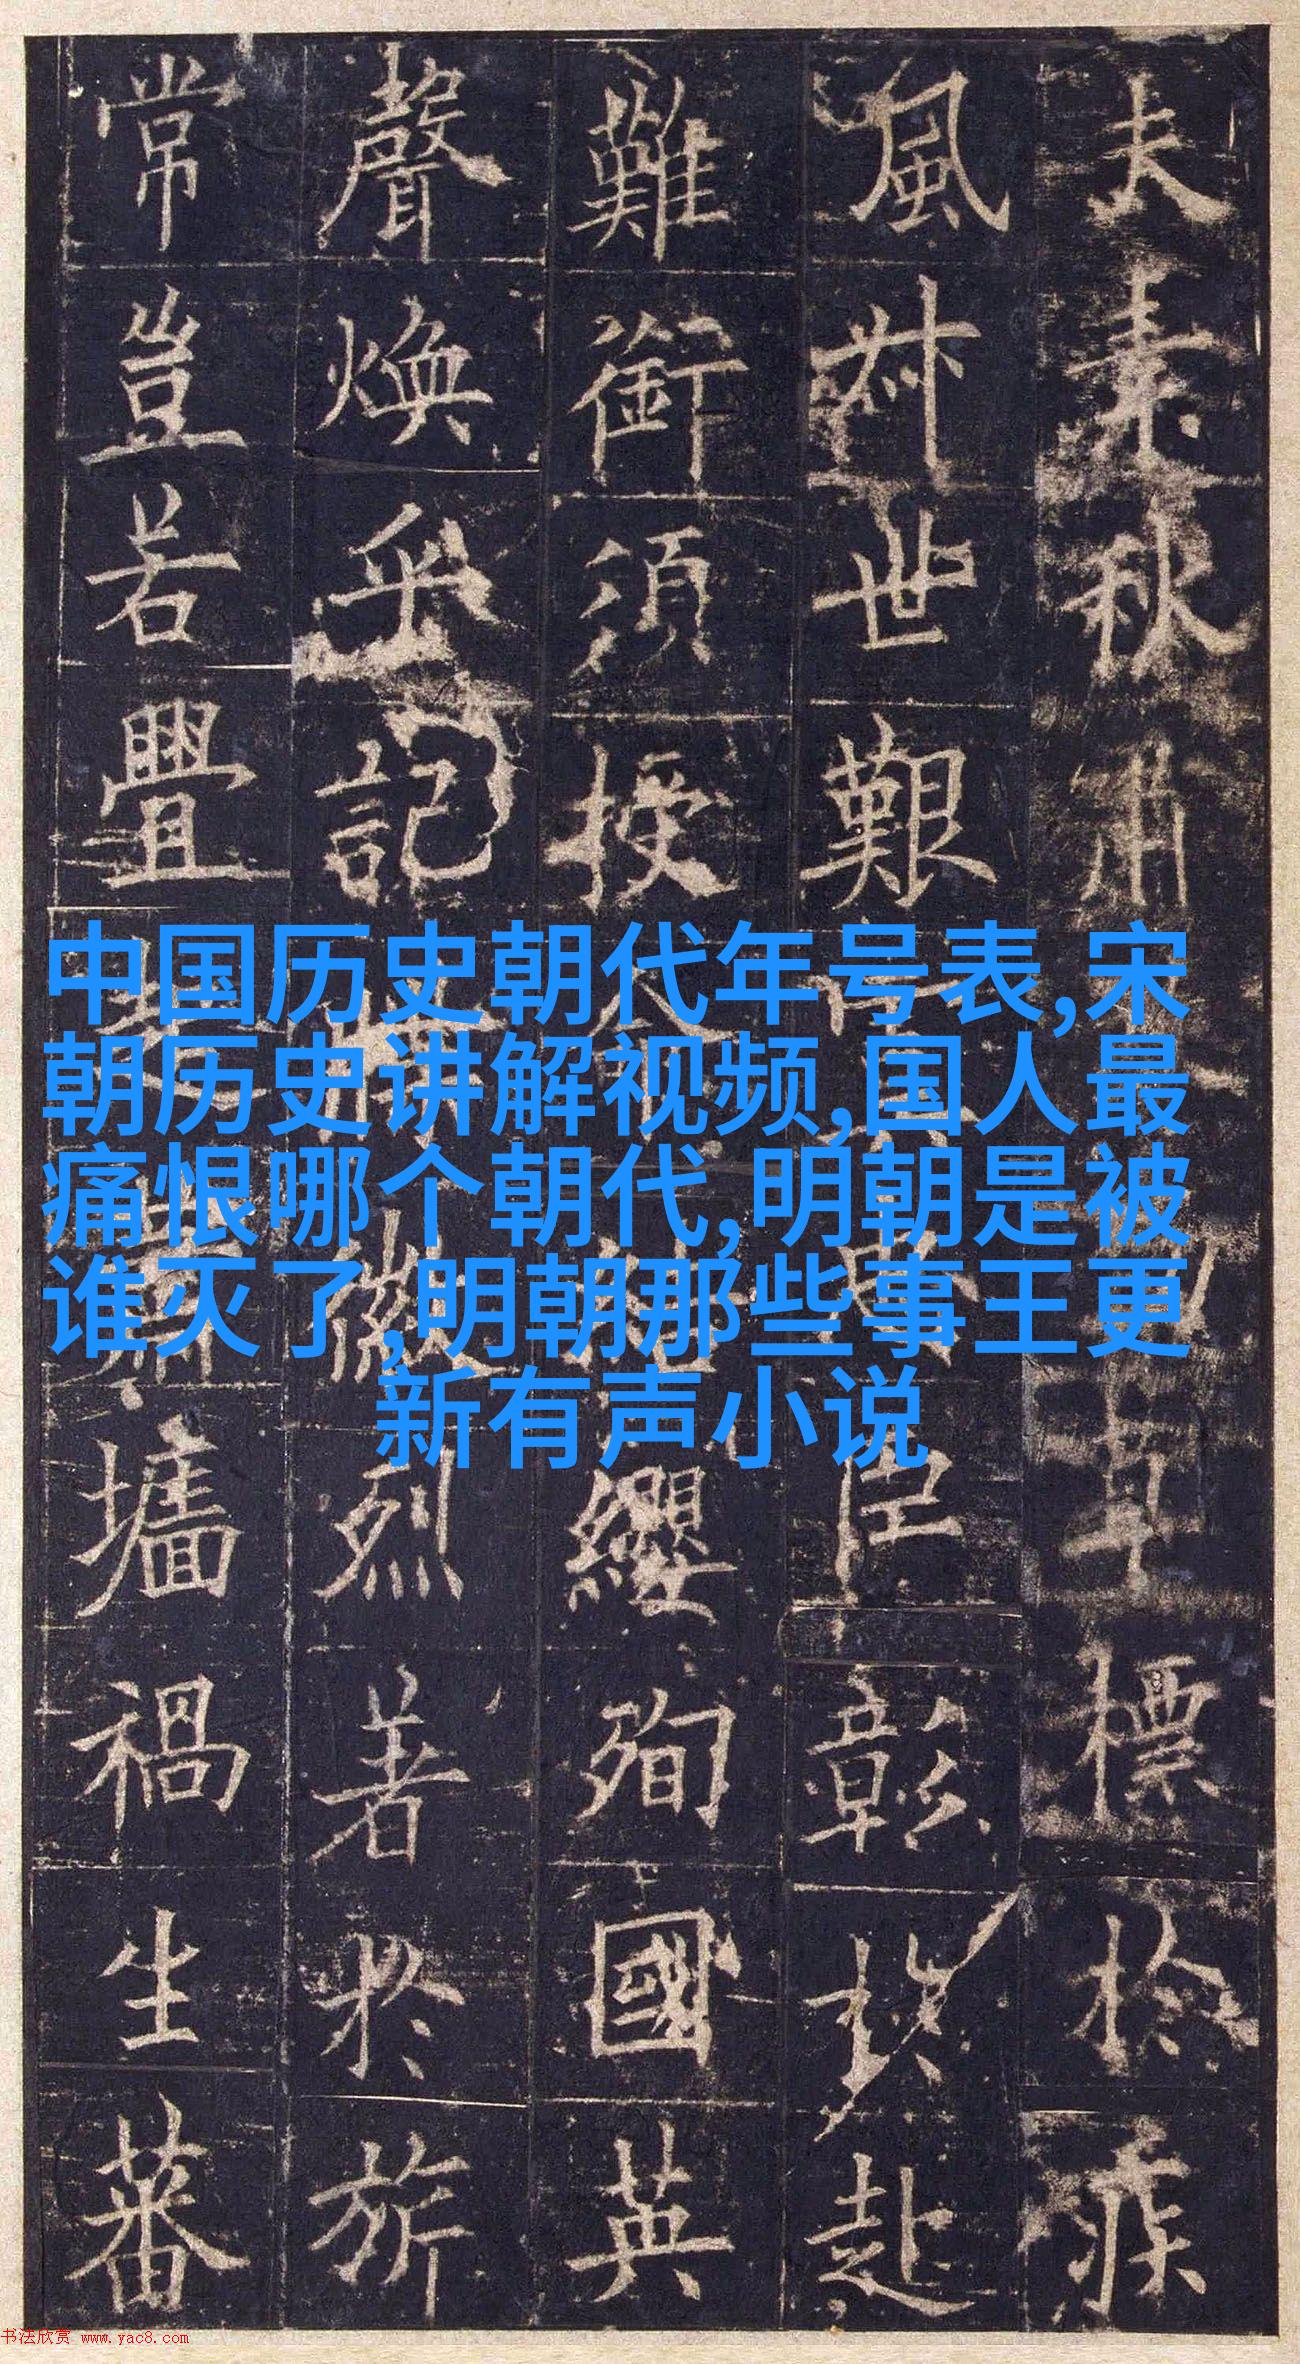 夫素秋肅草標於疾
風叔世艱臣彰於赴
難銜須授纓殉國英
聲煥乎記徽烈著於旂
常豈若舋墻禍生蕃
中国历史朝代年号表,宋
朝历史讲解视频,国人最
痛恨哪个朝代,明朝是被
谁灭了,明朝那些事王更
新有声小说
书法欣赏 www.yac8.com